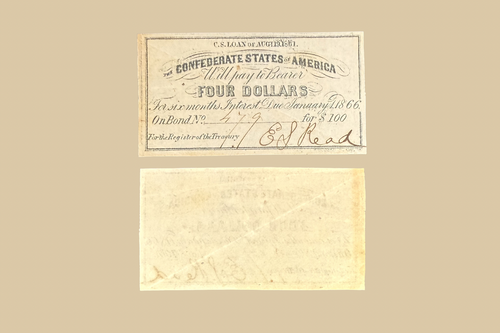 C.S. LOAN OF AUG 19, 1861.
THE CONFEDERATE STATES OF AMERICA
Will pay to Bearer
FOUR DOLLARS
For six months Interest Due January 1, 1866.
On Bond No. 479 for $100
For the Register of the Treasury
E S Read